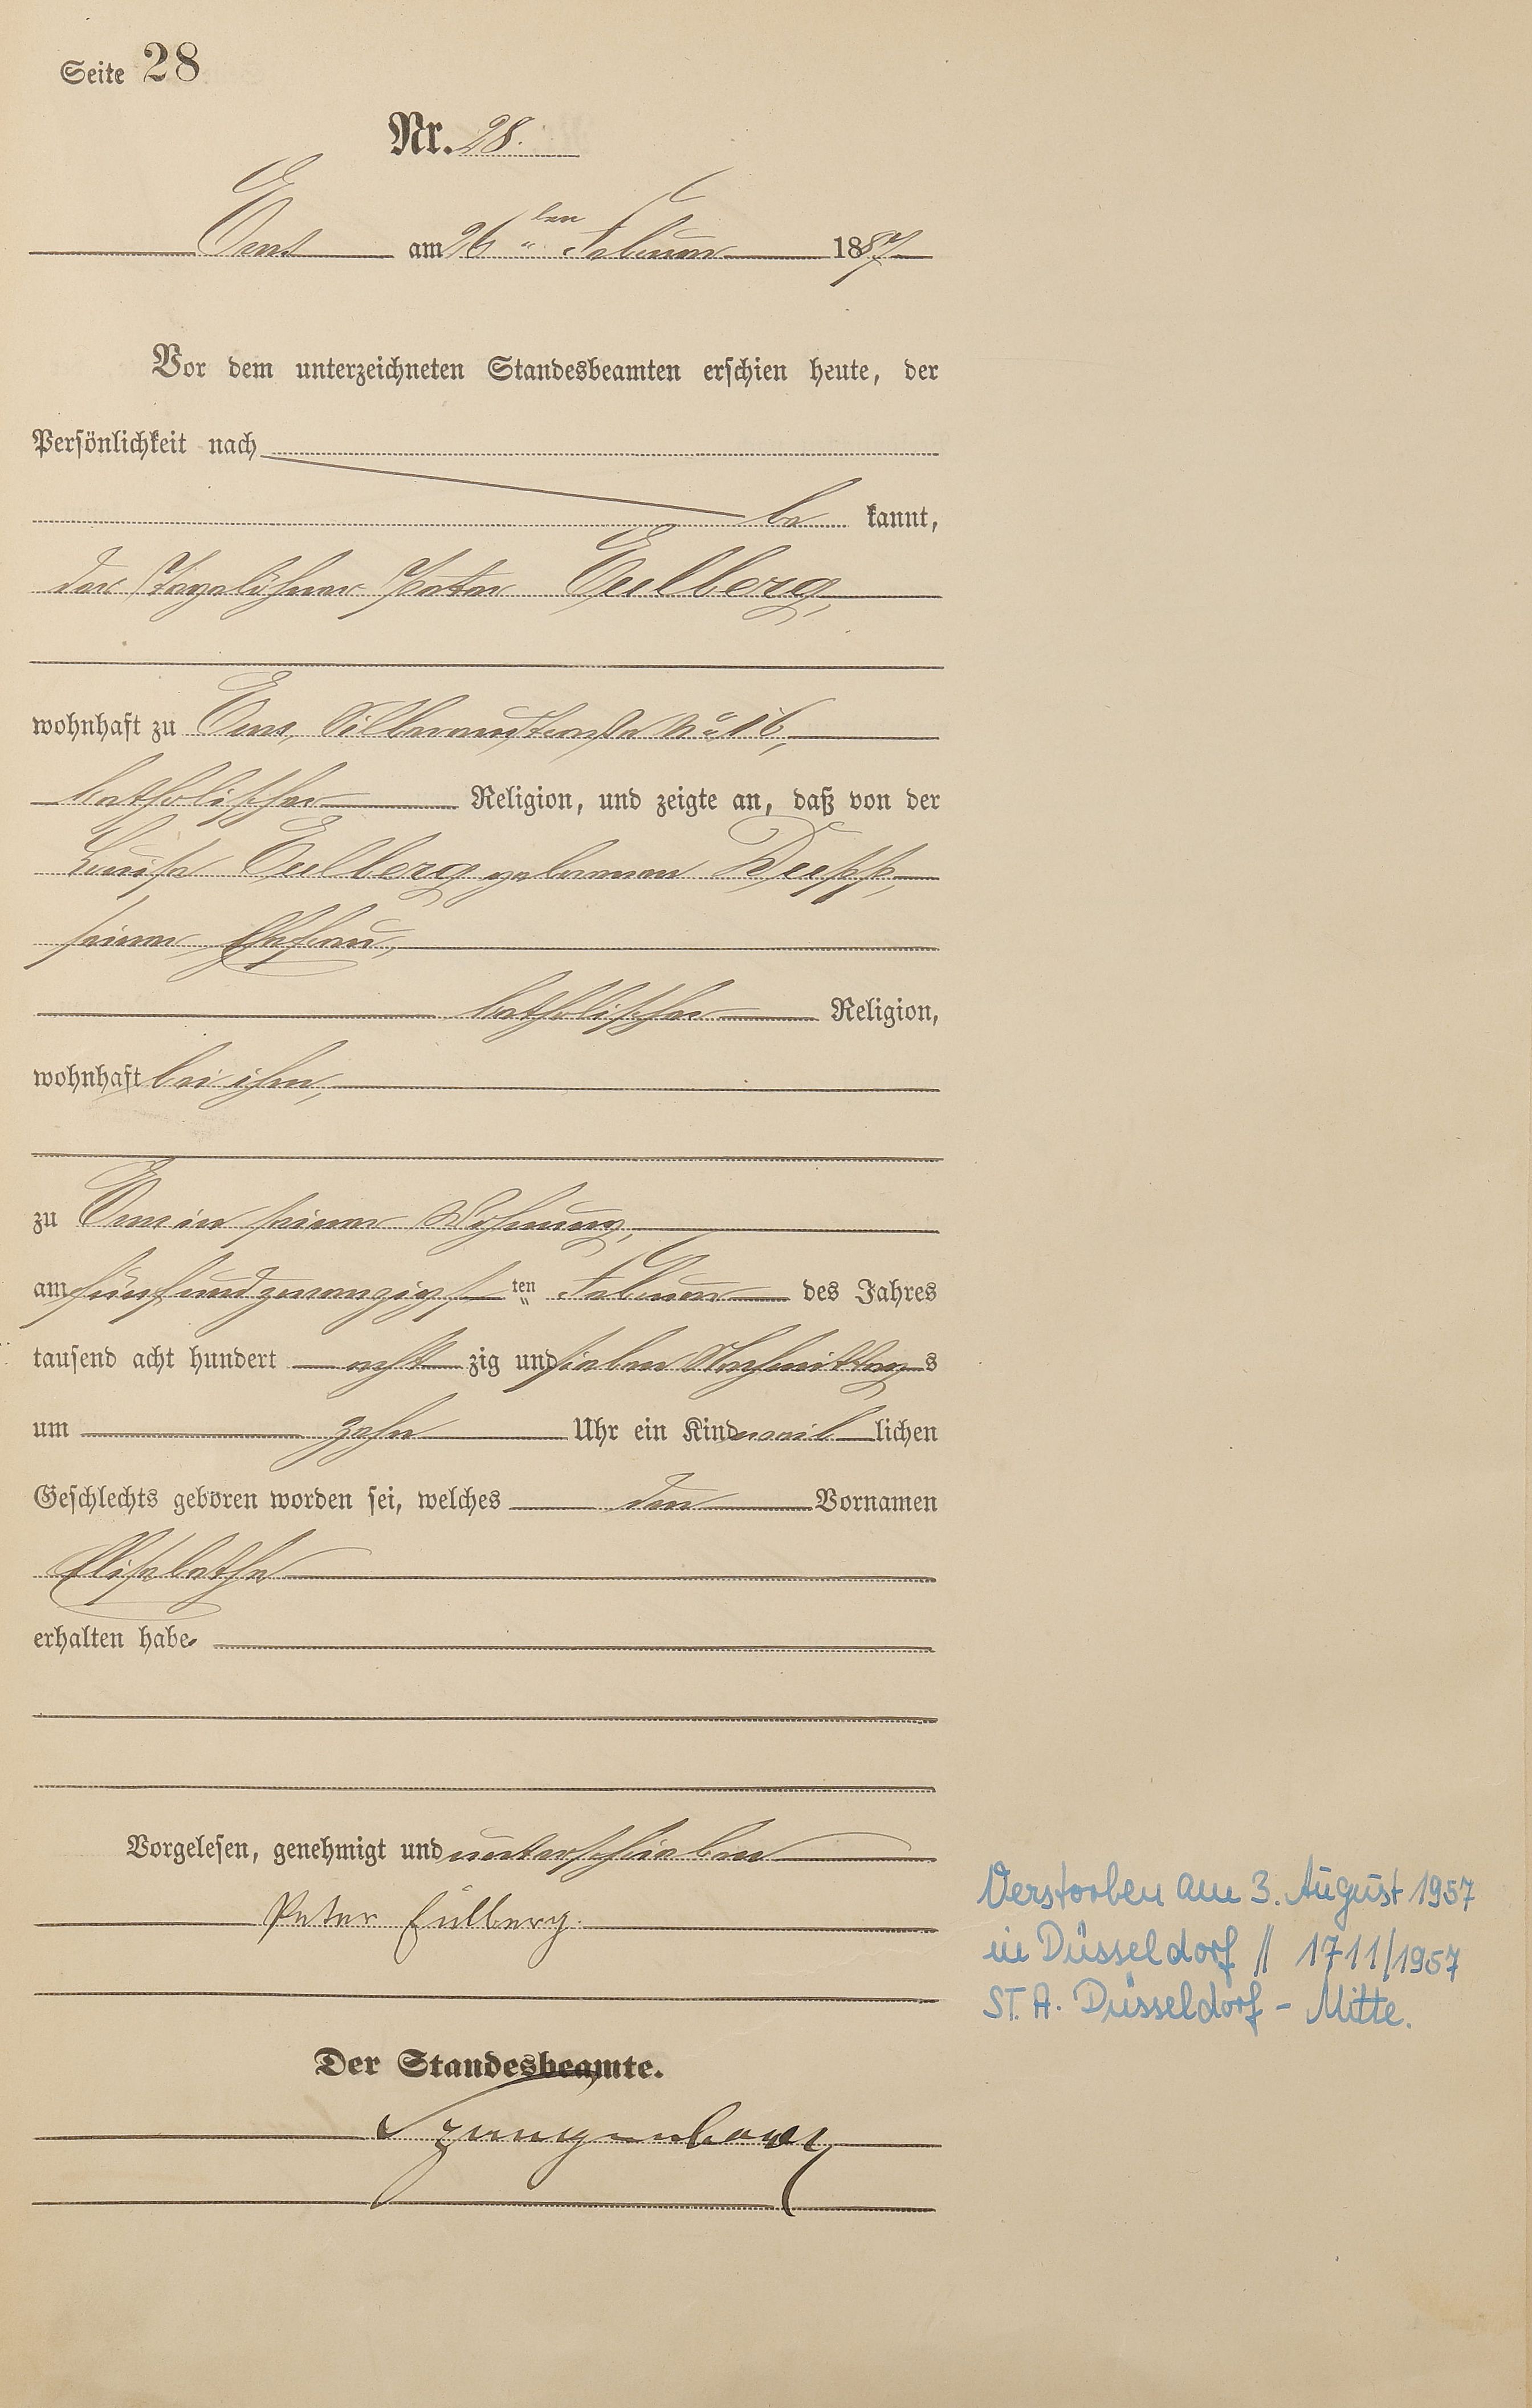 Seite 28
Nr. 28.
Ems am 26 ten Februar 1887
Vor dem unterzeichneten Standesbeamten erschien heute, der
Persönlichkeit nach
be kannt,
der Tagelöhner Peter Eulberg,
wohnhaft zu Ems, Silberaustraße No 16,
katholischer Religion, und zeigte an, daß von der
Luise Eulberg geborenen Dupp,
seiner Ehefrau,
katholischer Religion,
wohnhaft bei ihm,
zu Ems in seiner Wohnung,
am fünfundzwanzigsten Februar des Jahres
tausend acht hundert acht zig und sieben Nachmittags
um zehn Uhr ein Kind weiblichen
Geschlechts geboren worden sei, welches den Vornamen
Elisabetha
erhalten habe
Vorgelesen, genehmigt und unterschrieben
Peter Eülberg.
Der Standesbeamte.
Verstorben am 3. August 1957
in Düsseldorf // 1711/1957
ST. A. Düsseldorf - Mitte.